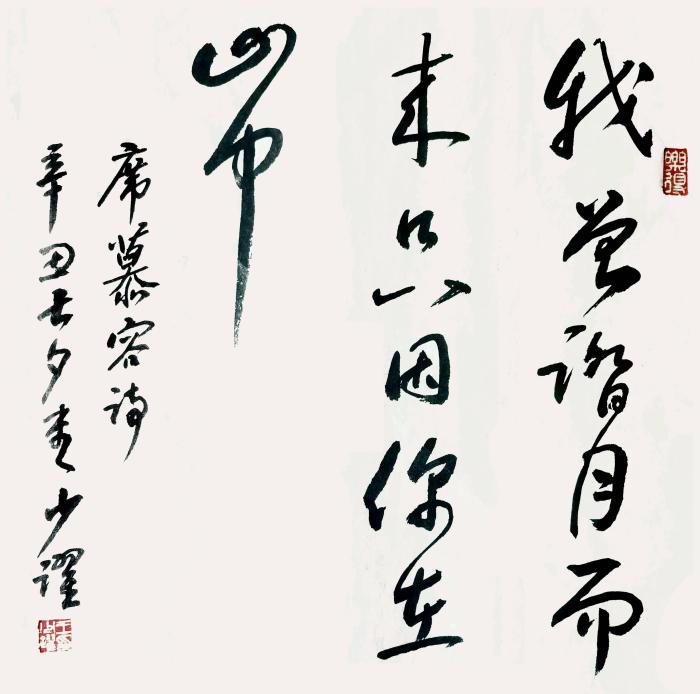 我曾踏月而
来只因你在
山中
席慕容诗
辛丑七夕少躍